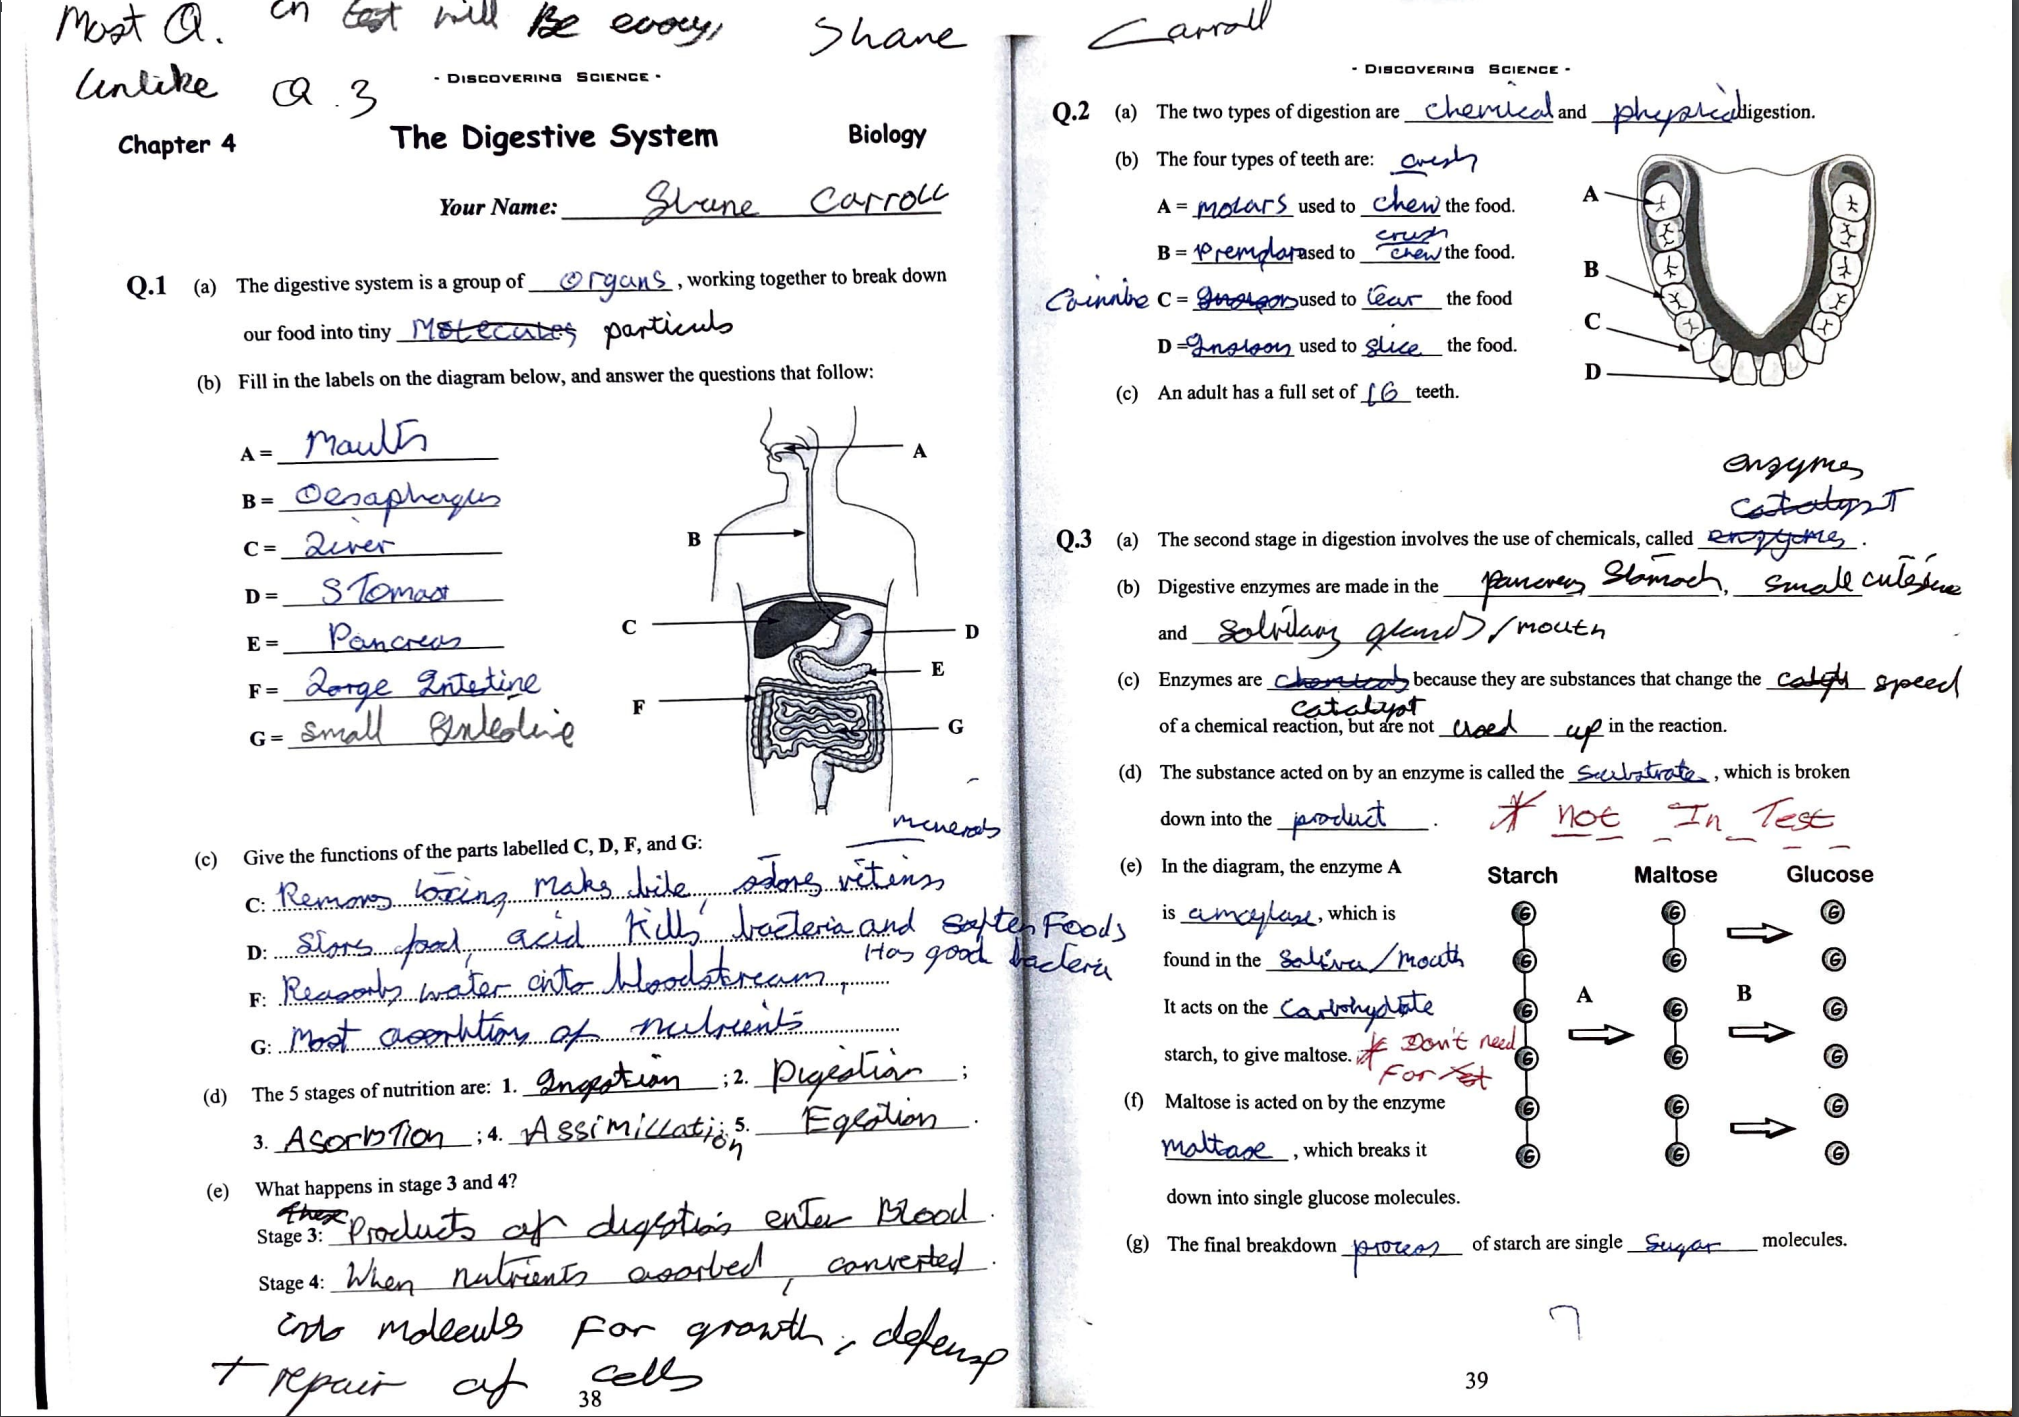 Most Q. in test will Be
Unlike Q.3
Shane Carroll
- DISCOVERING SCIENCE -
Chapter 4 The Digestive System Biology
Your Name: Shane Carroll
Q.1 (a) The digestive system is a group of organs, working together to break down
our food into tiny Molecules particuls
(b) Fill in the labels on the diagram below, and answer the questions that follow:
A = Mouth
B = Oesaphagus
C = Liver
D = STomach
E = Pancreas
F = Large Intestine
G = small Intestine
A
B
C
D
E
F
G
minerals
(c) Give the functions of the parts labelled C, D, F, and G:
C: Removes toxins, makes bile, stores
D: Stores food, acid kills bacteria and softens Foods
Has good bacteria
F: Reasorbs water into bloodstream,
G: Most of nutrients
(d) The 5 stages of nutrition are: 1. Ingestion ; 2. Digestion ;
3. AsorbTion ; 4. Assimillation ; 5. Egestion .
(e) What happens in stage 3 and 4?
Stage 3: Products of digestion enter Blood.
Stage 4: When nutrients asorbed, converted.
into molecules For growth, defense
+ repair of cells
38
- DISCOVERING SCIENCE -
Q.2 (a) The two types of digestion are chemical and physical digestion.
(b) The four types of teeth are: crush
A = molars used to chew the food.
crush
B = Premolar used to chew the food.
C = used to tear the food
D = used to slice the food.
(c) An adult has a full set of 16 teeth.
A
B
C
D
enzymes
catalyst
Q.3 (a) The second stage in digestion involves the use of chemicals, called enzymes.
(b) Digestive enzymes are made in the pancreas Stomach, small
and glands/mouth
(c) Enzymes are chemicals because they are substances that change the speed
catalyst
of a chemical reaction, but are not used up in the reaction.
(d) The substance acted on by an enzyme is called the substrate, which is broken
down into the product. * not In Test
(e) In the diagram, the enzyme A
is amaylase, which is
found in the Saliva/Mouth
It acts on the Carbohydrate
starch, to give maltose. * Don't need
For Test
Starch Maltose Glucose
A
B
G G G
G G G
G G G
G G G
G G G
G G G
(f) Maltose is acted on by the enzyme
maltase, which breaks it
down into single glucose molecules.
(g) The final breakdown process of starch are single Sugar molecules.
39